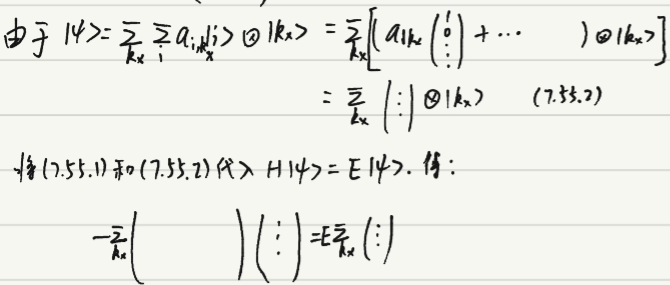 由于 |ψ>= Σ_{k_x} Σ_i a_{i,k_x}|i> ⊗ |k_x> = Σ_{k_x} [( a_{1k_x} (1 0 ⋮) + ⋯ ) ⊗ |k_x>]
= Σ_{k_x} (⋮) ⊗ |k_x> (7.55.2)
将(7.55.1)和(7.55.2)代入 H|ψ> = E|ψ>. 得:
-Σ_{k_x} ( ) (⋮) = E Σ_{k_x} (⋮)